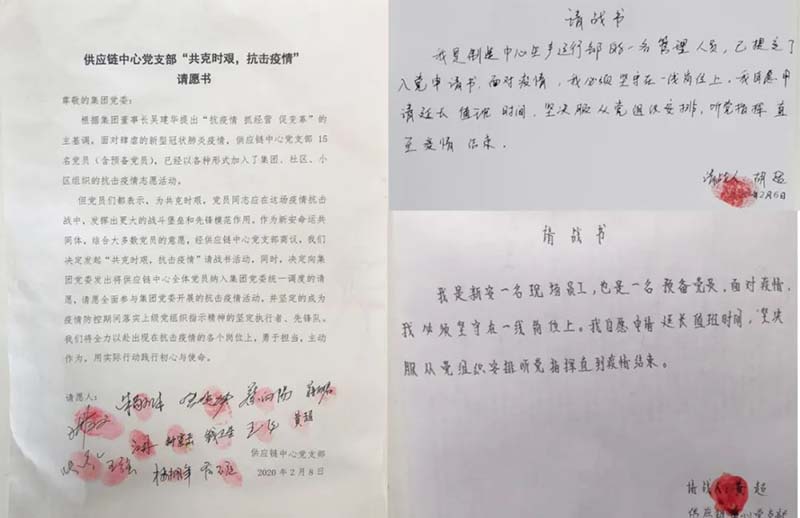 供应链中心党支部“共克时艰，抗击疫情”
请愿书
尊敬的集团党委：
根据集团董事长吴建华提出“抗疫情 抓经营 促变革”的
主基调，面对肆虐的新型冠状肺炎疫情，供应链中心党支部 15
名党员（含预备党员），已经以各种形式加入了集团、社区、小
区组织的抗击疫情志愿活动。
但党员们都表示，为共克时艰，党员同志应在这场疫情抗击
战中，发挥出更大的战斗堡垒和先锋模范作用。作为新安命运共
同体，结合大多数党员的意愿，经供应链中心党支部商议，我们
决定发起“共克时艰，抗击疫情”请战书活动。同时，决定向集
团党委发出将供应链中心全体党员纳入集团党委统一调度的请
愿，请愿全面参与集团党委开展的抗击疫情活动，并坚定的成为
疫情防控期间落实上级党组织指示精神的坚定执行者、先锋队。
我们将全力以赴出现在抗击疫情的各个岗位上，勇于担当，主动
作为，用实际行动践行初心与使命。
请愿人：
黄超
汪丹
钱卫星
王强
供应链中心党支部
2020 年 2 月 8 日
请战书
我是制造中心生产运行部的一名管理人员，已提交了
入党申请书，面对疫情，我必须坚守在一线岗位上。我自愿申
请延长值班时间，坚决服从党组织安排，听党指挥直
至疫情结束．
请战人：胡超
2月6日
请战书
我是新安一名现场员工，也是一名预备党员，面对疫情，
我必须坚守在一线岗位上。我自愿申请延长值班时间，坚决
服从党组织安排听党指挥直到疫情结束。
请战人：黄超
供应链中心党支部